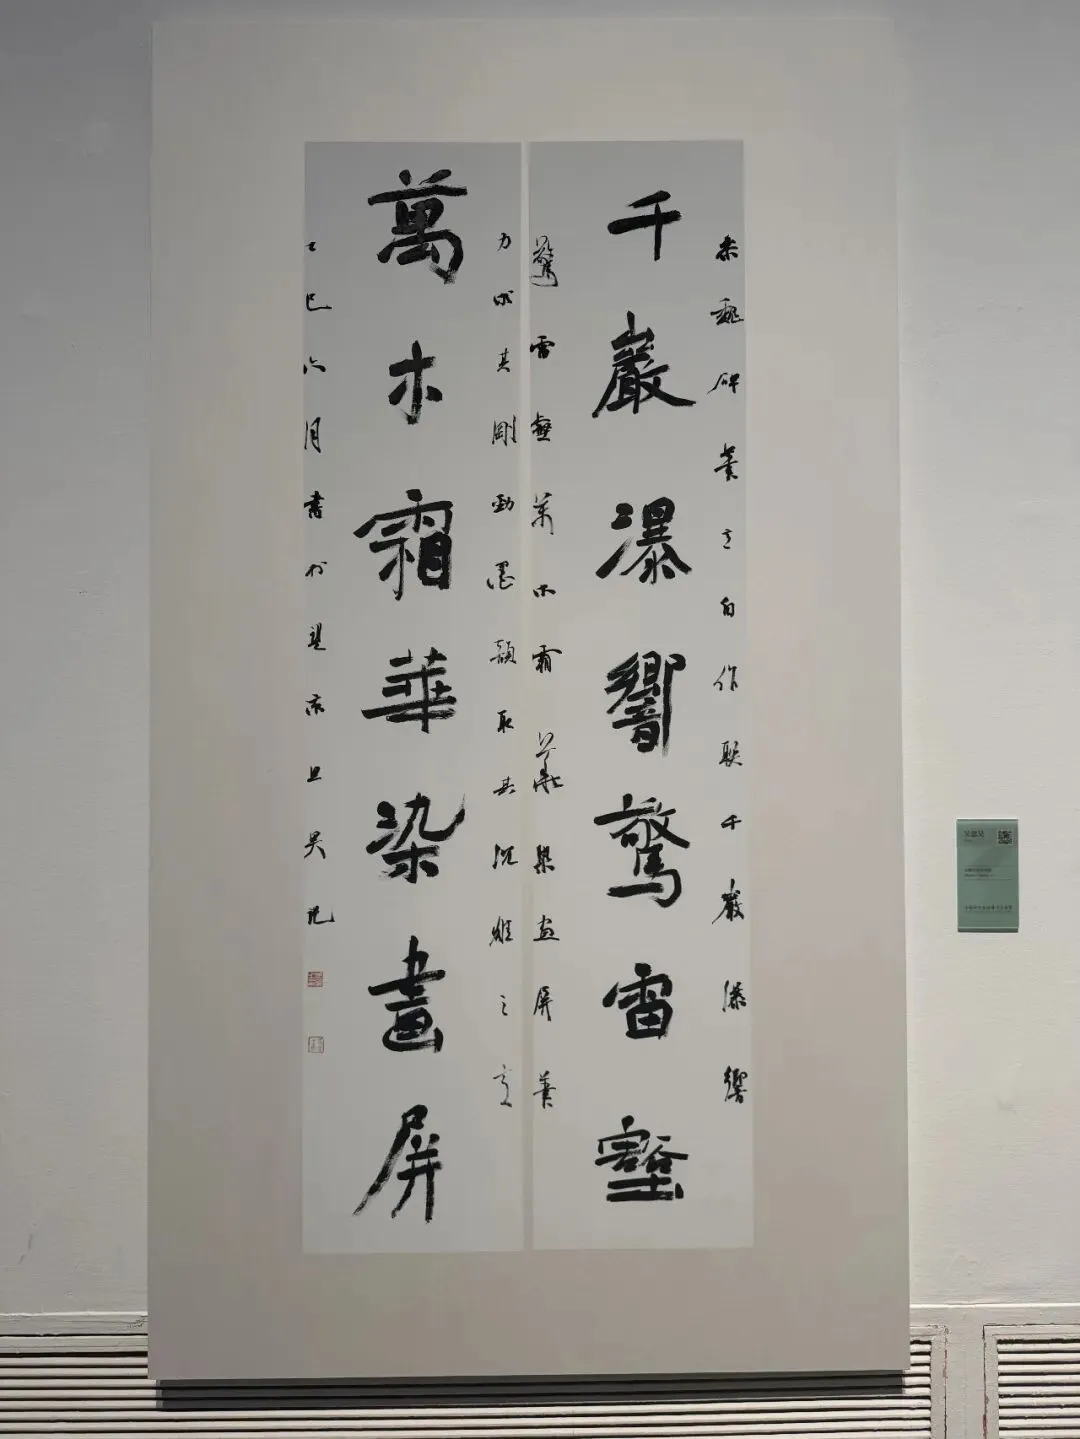 千巖瀑響驚雷壑
萬木霜華染畫屏
魏碑筆意自作联千巖瀑響
驚雷壑萬木霜華染畫屏筆
力求其剛勁墨韻取其沉雄之意
乙巳六月書於望京旦昊記